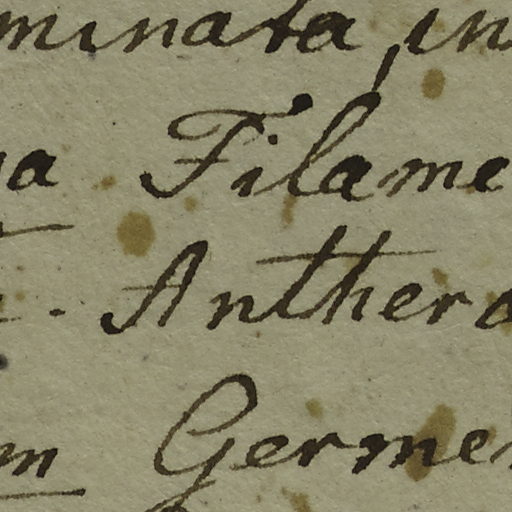 minata, in
a Filame
. Anthera
m Germe